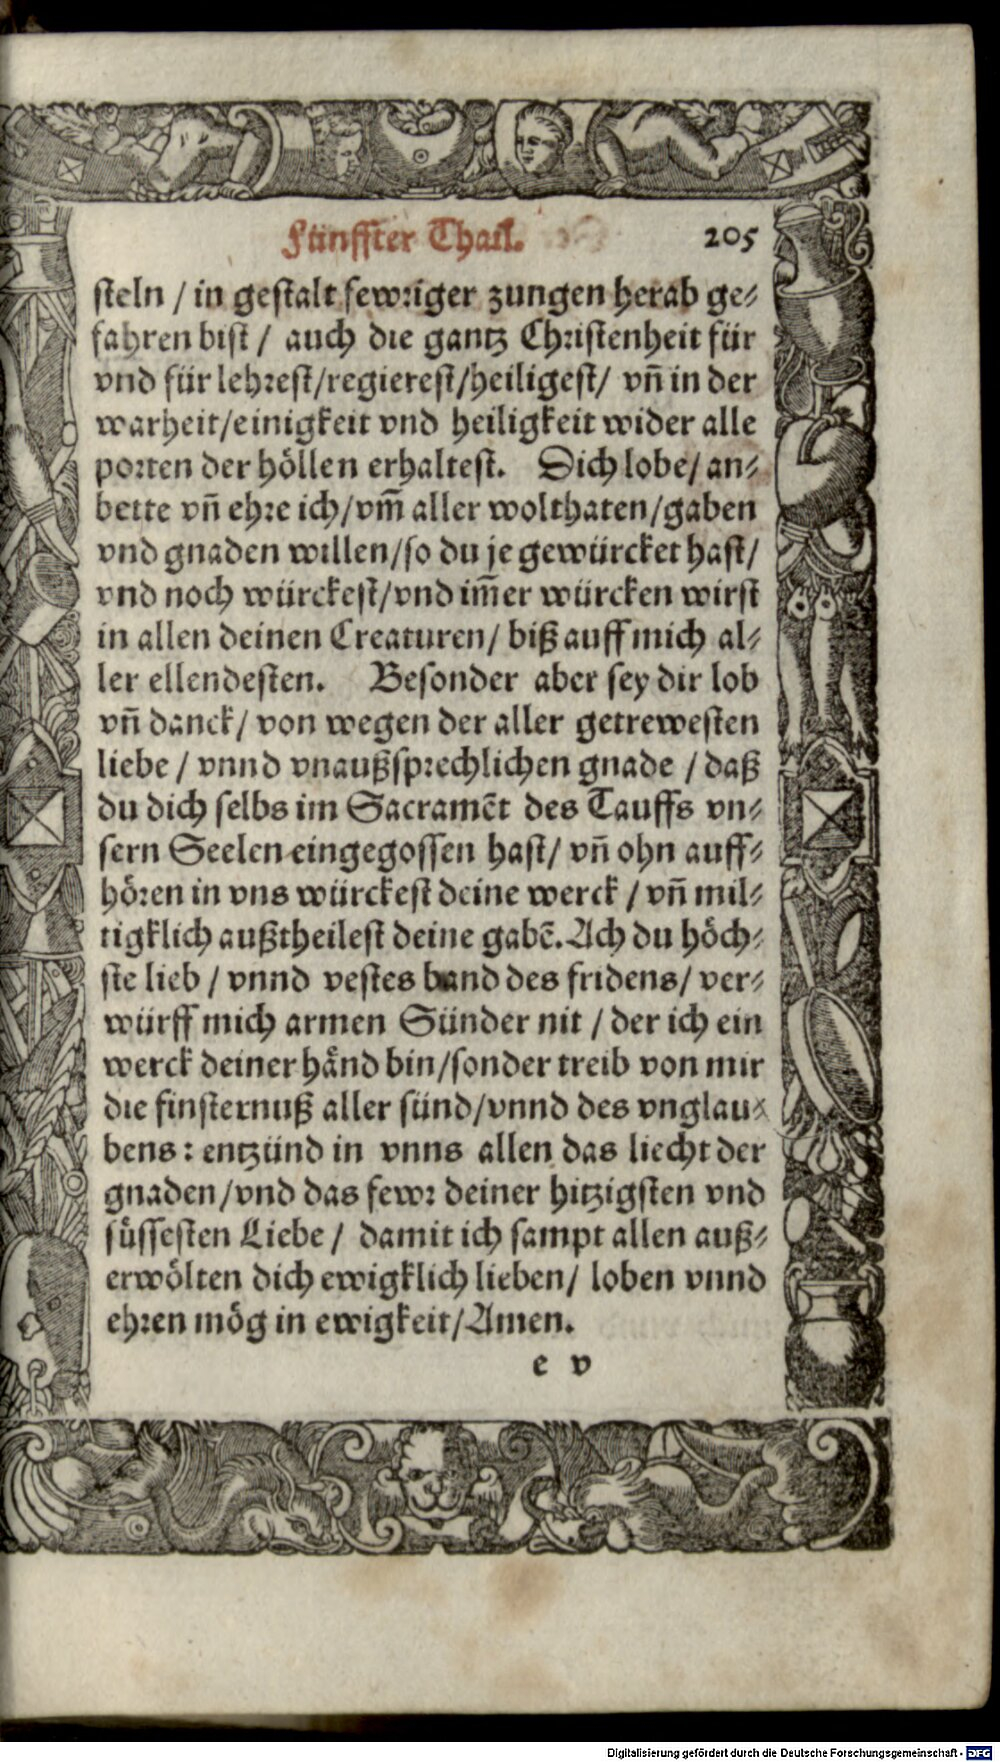 Fünffter Thail.
205
steln / in gestalt fewriger zungen herab ge⸗
fahren bist / auch die gantz Christenheit für
vnd für lehrest/regierest/heiligest/ vn̄ in der
warheit/einigkeit vnd heiligkeit wider alle
porten der höllen erhaltest. Dich lobe/ an⸗
bette vn̄ ehre ich/vm̄ aller wolthaten/gaben
vnd gnaden willen/so du je gewürcket hast/
vnd noch würckest/vnd im̄er würcken wirst
in allen deinen Creaturen/ biß auff mich al⸗
ler ellendesten. Besonder aber sey dir lob
vn̄ danck/ von wegen der aller getrewesten
liebe / vnnd vnaußsprechlichen gnade / daß
du dich selbs im Sacramēt des Tauffs vn⸗
sern Seelen eingegossen hast/ vn̄ ohn auff⸗
hören in vns würckest deine werck / vn̄ mil⸗
tigklich außtheilest deine gabē. Ach du höch⸗
ste lieb / vnnd vestes band des fridens/ ver⸗
würff mich armen Sünder nit / der ich ein
werck deiner händ bin/sonder treib von mir
die finsternuß aller sünd/vnnd des vnglau⸗
bens: entzünd in vnns allen das liecht der
gnaden/vnd das fewr deiner hitzigsten vnd
süssesten Liebe/ damit ich sampt allen auß⸗
erwölten dich ewigklich lieben/ loben vnnd
ehren mög in ewigkeit/Amen.
e v
Digitalisierung gefördert durch die Deutsche Forschungsgemeinschaft - DFG